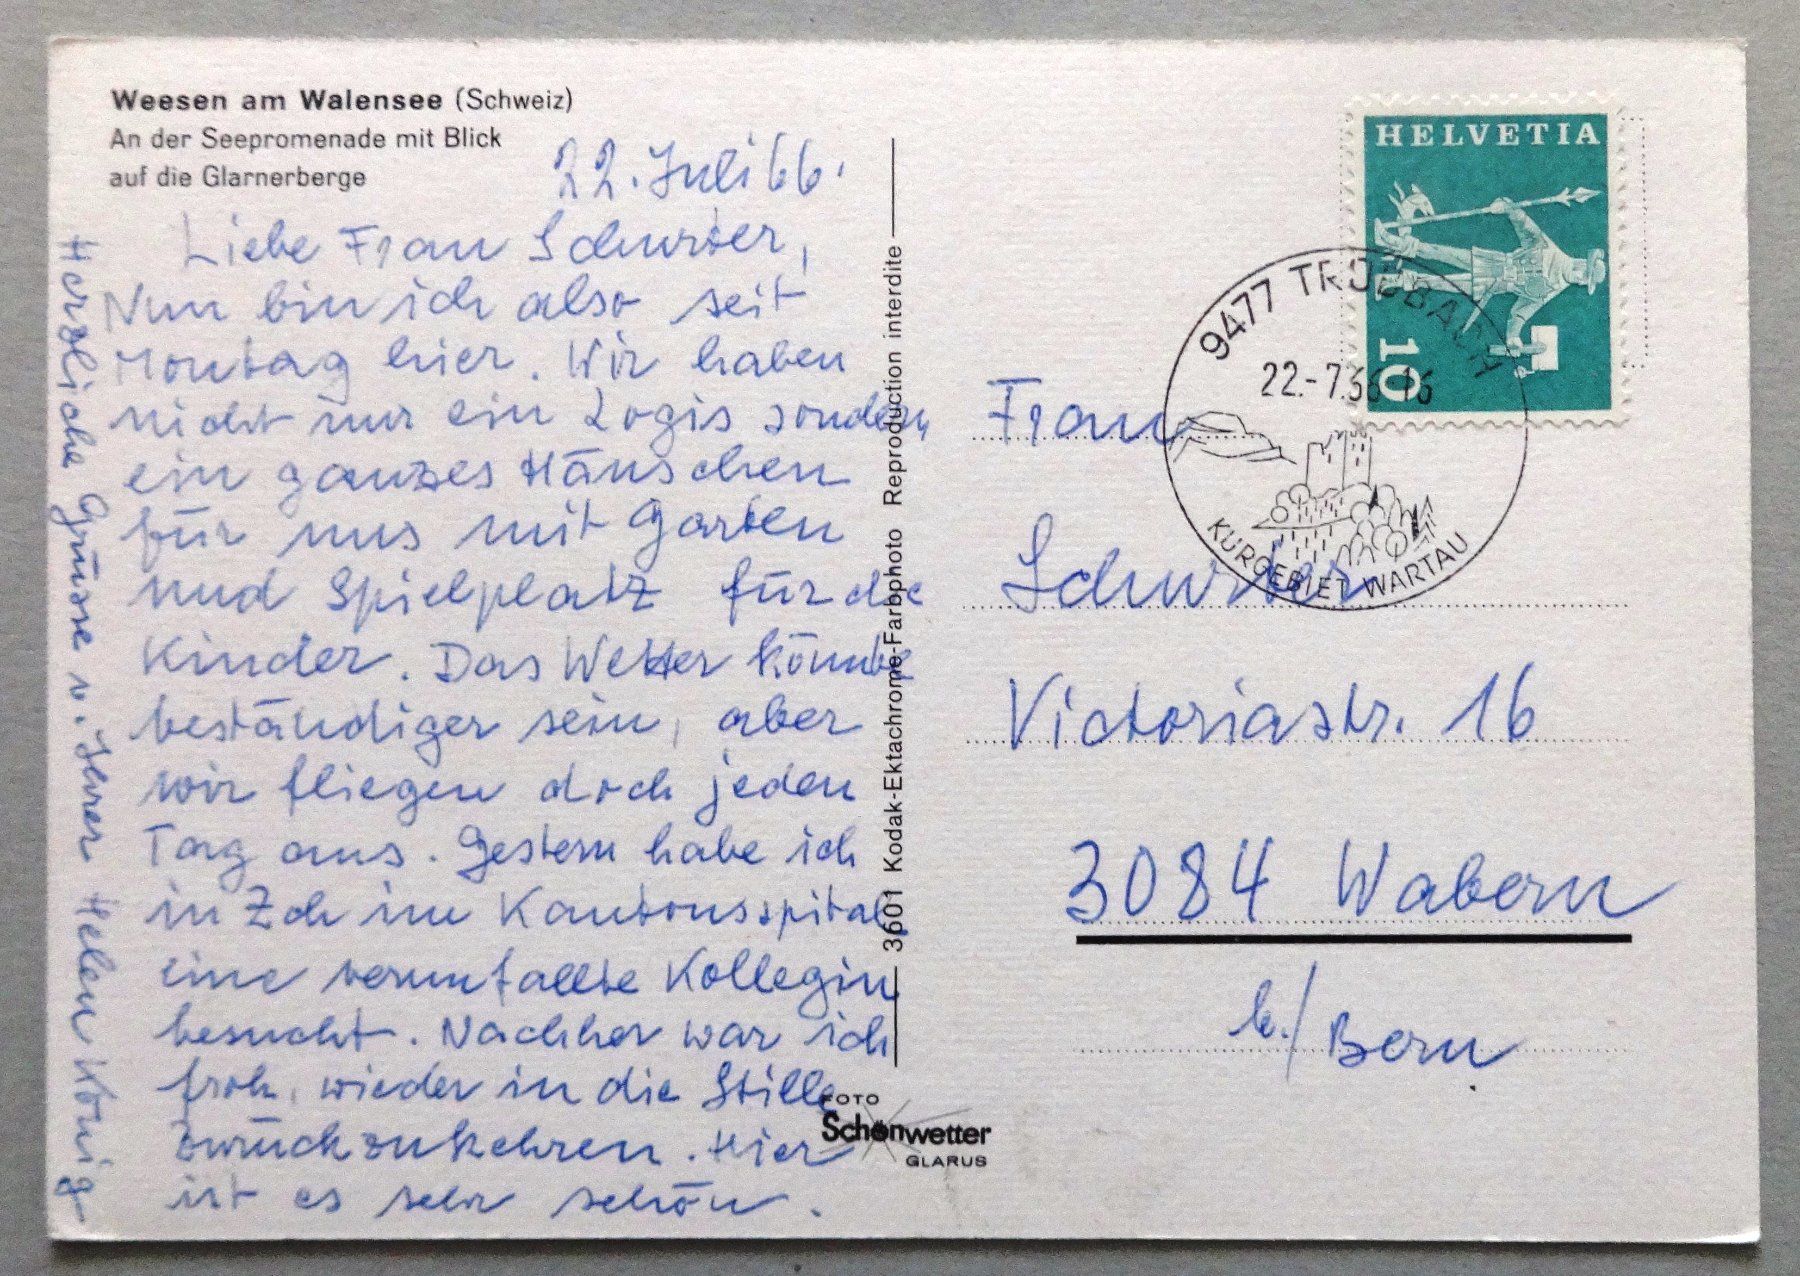 Weesen am Walensee (Schweiz)
An der Seepromenade mit Blick
auf die Glarnerberge
22. Juli 66.
Liebe Frau Schurter,
Nun bin ich also seit
Montag hier. Wir haben
nicht nur ein Logis sondern
ein ganzes Häuschen
für uns mit Garten
und Spielplatz für die
Kinder. Das Wetter könnte
beständiger sein, aber
wir fliegen doch jeden
Tag aus. Gestern habe ich
in Zch im Kantonsspital
eine verunfallte Kollegin
besucht. Nachher war ich
froh, wieder in die Stille
zurückzukehren. Hier
ist es sehr schön.
Herzliche Grüsse v. Ihrer Helen König
3601 Kodak-Ektachrome-Farbphoto Reproduction interdite
FOTO
Schönwetter
GLARUS
HELVETIA
10
9477 TRÜBBACH
22.-7.66 16
KURGEBIET WARTAU
Frau
Schurter
Victoriastr. 16
3084 Wabern
b./Bern